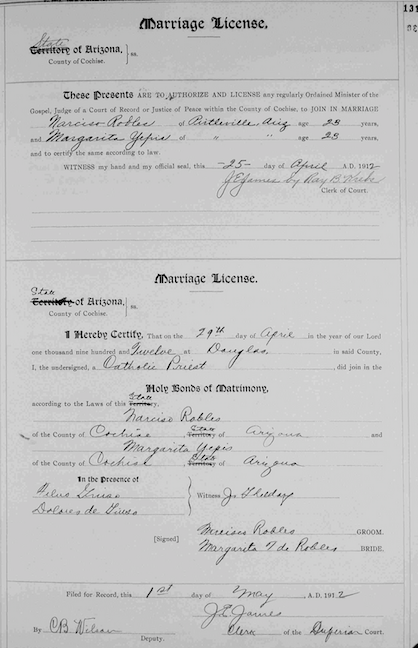 131
Marriage License,
State
Territory of Arizona,
County of Cochise.
ss.
These Presents ARE TO AUTHORIZE AND LICENSE any regularly Ordained Minister of the
Gospel, Judge of a Court of Record or Justice of Peace within the County of Cochise, to JOIN IN MARRIAGE
Narciso Robles of Pirtleville, Ariz age 23 years,
and Margarita Yepis of " " age 23 years,
and to certify the same according to law.
WITNESS my hand and my official seal, this -25- day of April A.D. 1912
J E James by Ray B.
Clerk of Court.
Marriage License.
State
Territory of Arizona,
County of Cochise.
ss.
I Hereby Certify, That on the 29th day of April in the year of our Lord
one thousand nine hundred and Twelve at Douglas, in said County,
I, the undersigned, a Catholic Priest did join in the
Holy Bonds of Matrimony,
State
according to the Laws of this Territory,
Narciso Robles
of the County of Cochise State Territory of Arizona and
Margarita Yepis
of the County of Cochise State Territory of Arizona
In the Presence of
Witness
Dolores de
[Signed]
Robles GROOM.
Margarita de Robles BRIDE.
Filed for Record, this 1st day of May, A.D. 1912
J.E. James
By C B Wilson Clerk of the Superior Court.
Deputy.